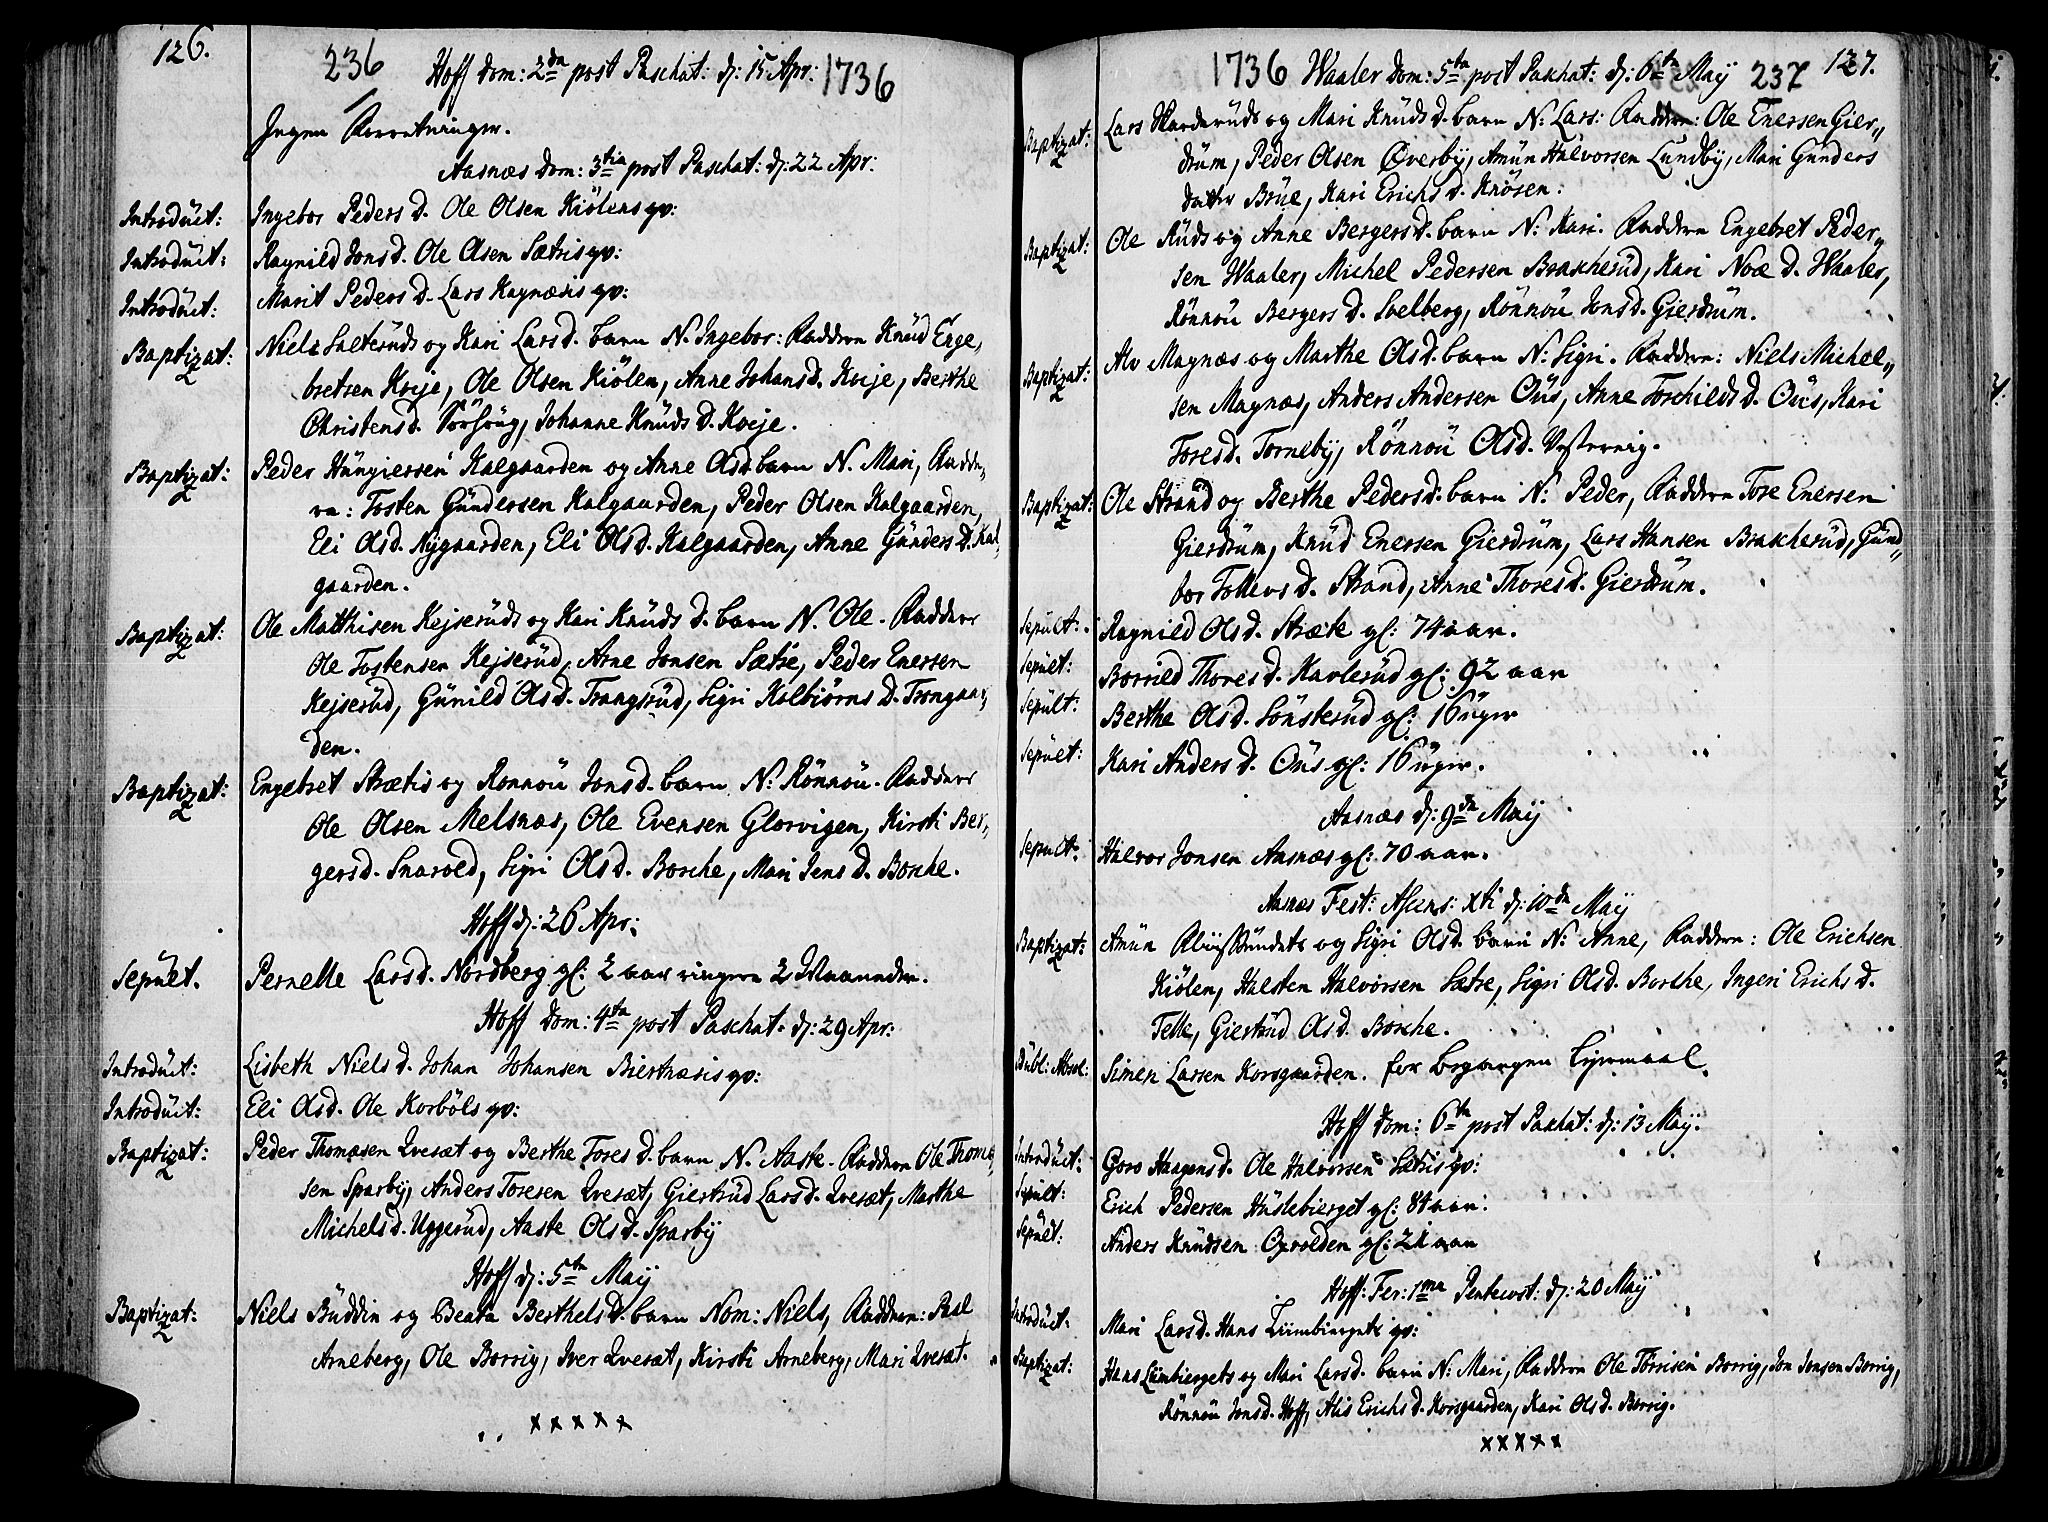 126.
236 Hoff Dom: 2da post Paschat: d: 15 Apr: 1736
Ingen Forretninger.
Aasnæs Dom: 3tia post Paschat: d: 22 Apr:
Introduct: Ingebor Peders D. Ole Olsen Kiölens qv:
Introduct: Ragnild Jonsd. Ole Olsen Sætris qv:
Introduct: Marit Peders D. Lars Kagnæsis qv:
Baptizat: Niels Salteruds og Kari Larsd. barn N. Ingebor: Faddere Knud Enge,
bretsen Kveje, Ole Olsen Kiölen, Anne Johansd. Kveje, Berthe
Christensd. Johanne Knuds D. Kveje.
Baptizat: Peder Kalgaarden og Anne Olsd. barn N. Mari, Fadde,
re: Tosten Gündersen Kalgaarden, Peder Olsen Kalgaarden,
Eli Olsd. Nygaarden, Eli Olsd. Kalgaarden, Anne Günders D. Kal,
gaarden.
Baptizat: Ole Matthisen Kejserüds og Kari Knüds D. barn N. Ole. Faddere
Ole Tostensen Kejserüd, Arne Jonsen Sætre, Peder Enersen
Kejserüd, Günild Olsd. Trangsrüd, Sigri Kolbiörns D. Trongaar,
den.
Baptizat: Engebret Strætis og Ronnoü Jonsd. barn N: Rönnoü. Faddere
Ole Olsen Melsnæs, Ole Evensen Glorvigen, Kirsti Ber,
gersd. Snarved, Sigri Olsd. Borche, Mari Jens D. Borche.
Hoff d: 26 Apr:
Sepult. Pernelle Larsd. Nordberg gl: 2 aar ringere 2 Maaneder.
Hoff Dom: 4ta post Paschat: d: 29 Apr:
Introduct: Lisbeth Niels D. Johan Johansen Biertnæsis qv:
Introduct: Eli Olsd. Ole Korböls qv:
Baptizat: Peder Thomæsen Qvesæt og Berthe Tores D. barn N. Aaste. Faddere Ole Thomæ,
sen Sparby, Anders Toresen Qvesæt, Giertrüd Larsd. Qvesæt, Marthe
Michelsd. Üggerüd, Aaste Olsd. Sparby
Hoff d: 5te May
Baptizat: Niels Büddin og Beata Berthelsd. barn Nom: Niels, Faddere: Paal
Arneberg, Ole Borrig, Iver Qvesæt, Kirsti Arneberg, Mari Qvesæt.
x x x x x
1736 Waaler Dom: 5ta post Paschat: d: 6te May 237 127.
Baptizat: Lars Harderüds og Mari Knüds D. barn N: Lars: Faddere: Ole Enersen Gier,,
drüm, Peder Olsen Överby, Amün Halvorsen Lündby, Mari Günders
datter Brüe, Kari Erichs D. Knösen:
Baptizat: Ole Rüds og Anne Bergersd. barn N: Kari. Faddere Engebret Peder,,
sen Waaler, Michel Pedersen Brascherüd, Kari Noæ D. Waaler,
Rönnoü Bergers D. Solberg, Rönnoü Jonsd. Gierdrüm.
Baptizat: Alv Magnæs og Marthe Olsd. barn N: Sigri. Faddere: Niels Michel,,
sen Magnæs, Anders Andersen Oüs, Anne Torchilds D. Oüs, Kari
Toresd. Torneby, Rönnoü Olsd. Vestervig.
Baptizat: Ole Strand og Berthe Pedersd. barn N: Peder, Faddere Tore Enersen
Gierdrüm, Knüd Enersen Gierdrüm, Lars Hansen Brascherüd, Günd,,
bor Tollevs D. Strand, Anne Thoresd. Gierdrüm.
Sepult: Ragnild Olsd. Stræte gl: 74 aar.
Sepult: Borrild Thores D. Kavlerüd gl: 92 aar
Sepult: Berthe Olsd. Sönsterüd gl: 16 üger
Sepult: Kari Anders D. Oüs gl: 16 üger.
Aasnæs d: 9de May
Sepult: Halvor Jonsen Aasnæs gl: 70 aar.
Aasnæs Fest: Ascens: Xti d: 10de May
Baptizat: Amün og Sigri Olsd. barn N: Anne, Faddere: Ole Erichsen
Kiölen, Halsten Halvorsen Sætre, Sigri Olsd. Borche, Ingeri Erichs D.
Telle, Giertrüd Olsd. Borche.
Publ: Absol: Simen Larsen Korsgaarden. for begangen Leyermaal.
Hoff Dom: 6ta post Paschat: d: 13 May.
Introduct: Goro Haagensd. Ole Halvorsen Sætris qv:
Sepult: Erich Pedersen Hüslebierget gl: 84 aar:
Sepult: Anders Knüdsen Opvolden gl: 21 aar
Hoff: Fer: 1ma Pentecost: d: 20 May
Introduct: Mari Larsd. Hans Lümbiergets qv:
Baptizat: Hans Lümbiergets og Mari Larsd. barn N: Mari, Faddere Ole Torrisen Borrig, Jon Jonsen Borrig,
Rönnoü Jonsd. Hoff, Alis Erichs D. Korsgaarden, Kari Olsd. Borrig.
x x x x x